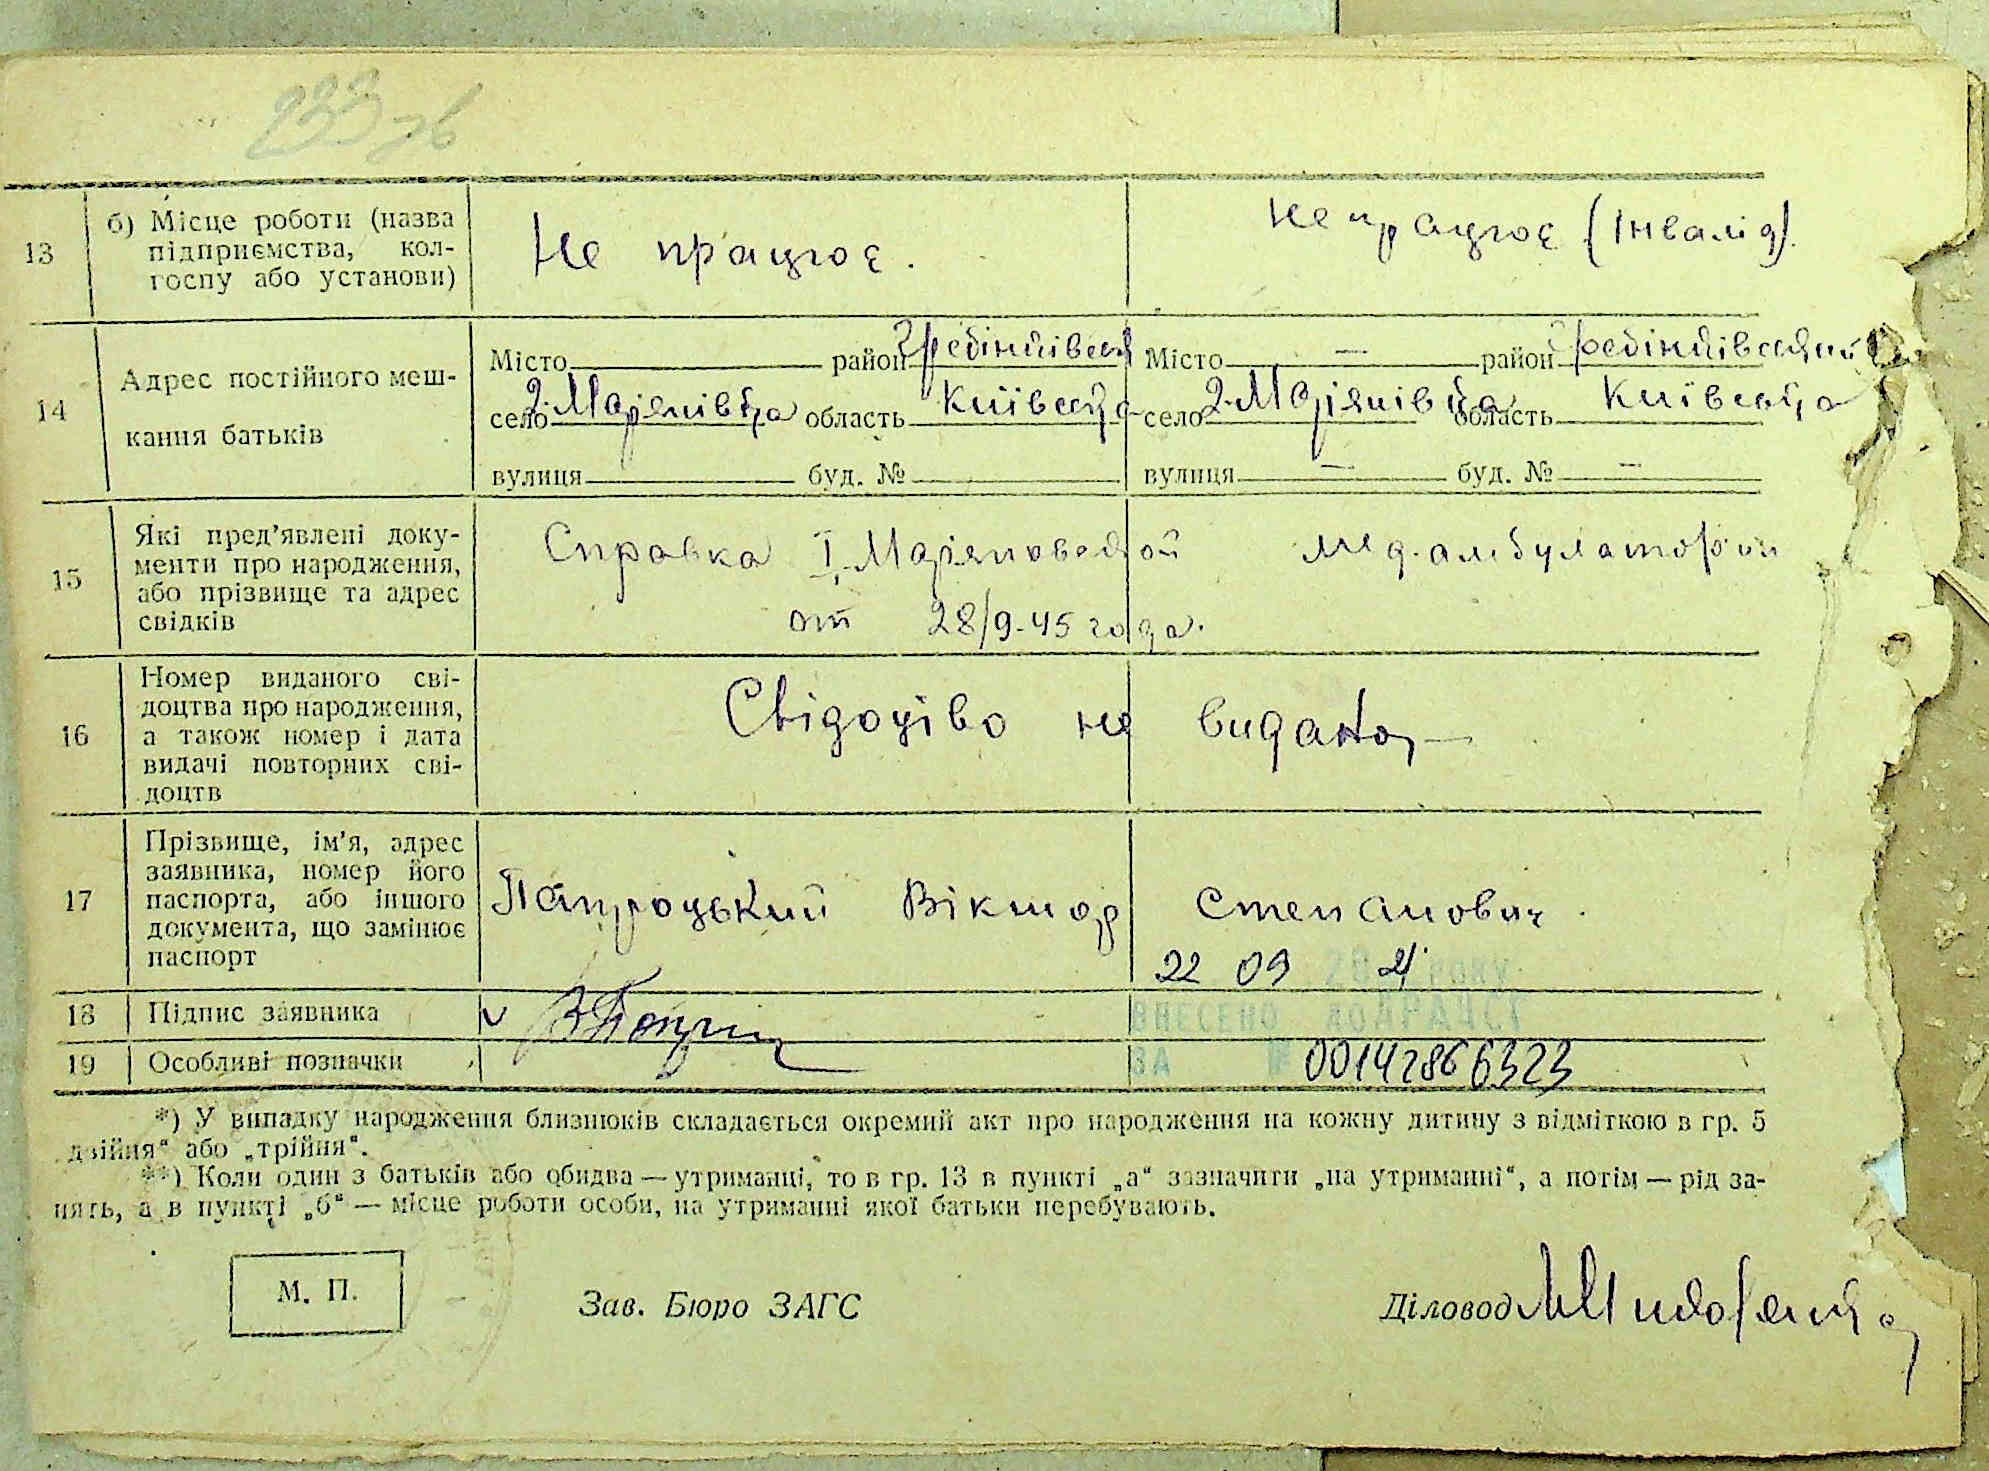 233 зв
13 б) Місце роботи (назва
підприємства, кол-
госпу або установи)
Не працює.
Не працює (Інвалід)
14 Адрес постійного меш-
кання батьків
Місто район Гребінківськ
село 2-Мар'янівка область Київська
вулиця буд. №
Місто — район Гребінківський
село 2-Мар'янівка область Київська
вулиця — буд. № —
15 Які пред'явлені доку-
менти про народження,
або прізвище та адрес
свідків
Справка I Марьяновской мед. амбулатории
от 28/9-45 года.
16 Номер виданого сві-
доцтва про народження,
а також номер і дата
видачі повторних сві-
доцтв
Свідоцтво не видано
17 Прізвище, ім'я, адрес
заявника, номер його
паспорта, або іншого
документа, що замінює
паспорт
Папроцький Віктор Степанович.
22 09 2021 РОКУ
18 Підпис заявника
v
ВНЕСЕНО ДО ДРАЦСГ
19 Особливі позначки
ЗА № 00142866323
*) У випадку народження близнюків складається окремий акт про народження на кожну дитину з відміткою в гр. 5
двійня“ або „трійня“.
**) Коли один з батьків або обидва — утриманці, то в гр. 13 в пункті „а“ зазначити „на утриманні“, а потім — рід за-
нять, а в пункті „б“ — місце роботи особи, на утриманні якої батьки перебувають.
М. П.
Зав. Бюро ЗАГС
Діловод